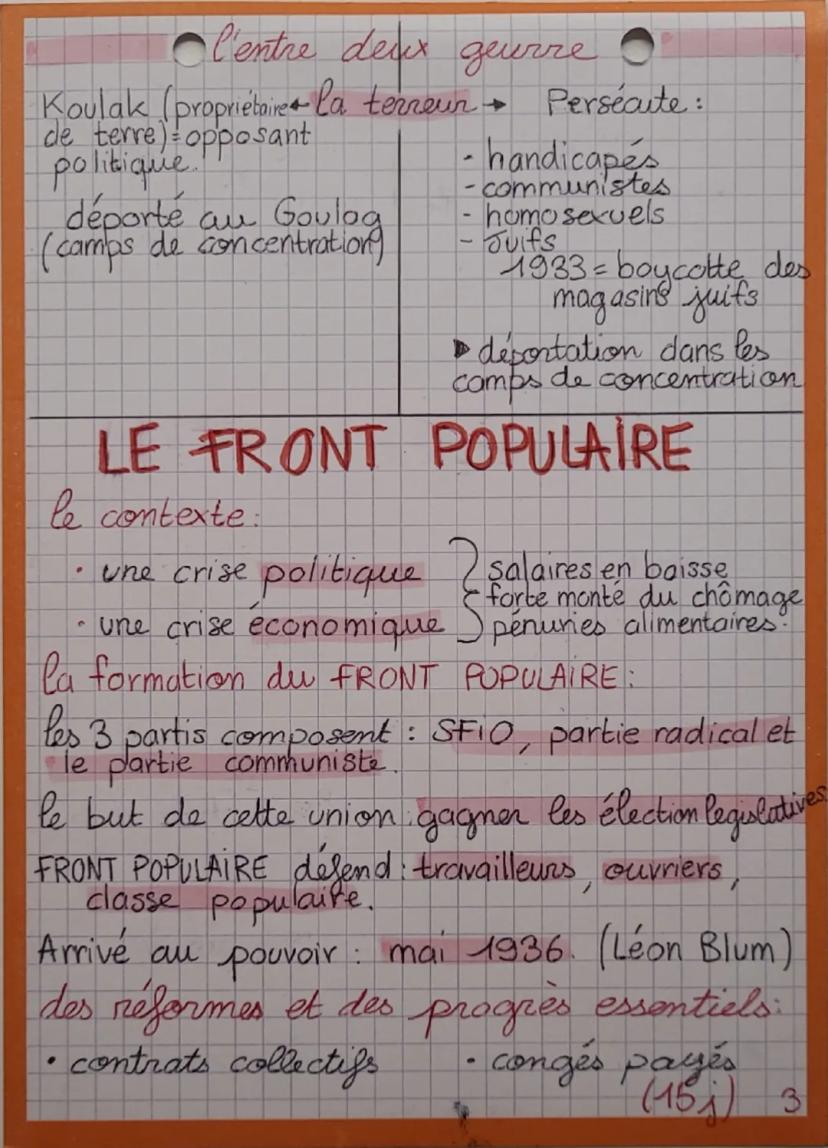 l'entre deux geurre
Koulak (propriétaire ← la terreur → Persécute :
de terre) = opposant
politique.
déporté au Goulag
(camps de concentration)
- handicapés
- communistes
- homosexuels
- Juifs
1933 = boycotte des
magasins juifs
▶ déportation dans les
camps de concentration
LE FRONT POPULAIRE
le contexte :
• une crise politique
• une crise économique
salaires en baisse
forte monté du chômage
pénuries alimentaires.
la formation du FRONT POPULAIRE :
les 3 partis composent : SFIO, partie radical et
le partie communiste.
le but de cette union : gagner les élection legislatives
FRONT POPULAIRE défend : travailleurs, ouvriers,
classe populaire.
Arrivé au pouvoir : mai 1936. (Léon Blum)
des réformes et des progrès essentiels :
• contrats collectifs • congés payés
(15 j) 3